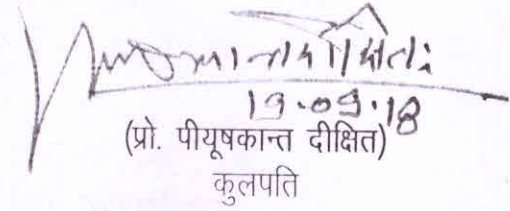 19.09.18
(प्रो. पीयूषकान्त दीक्षित)
कुलपति